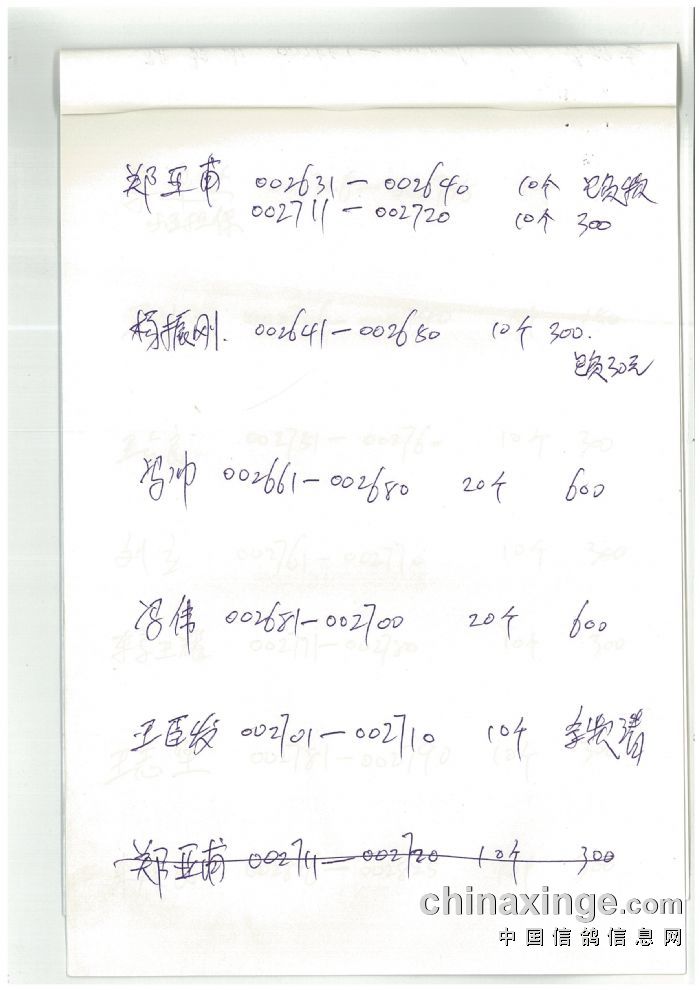 郑亚甫 002631-002640 10个
002711-002720 10个 300
杨振刚. 002641-002650 10个 300.
30元
冯帅 002661-002680 20个 600
冯伟 002681-002700 20个 600
王臣发 002701-002710 10个
郑亚甫 002711-002720 10个 300
chinaxinge.com
中国信鸽信息网